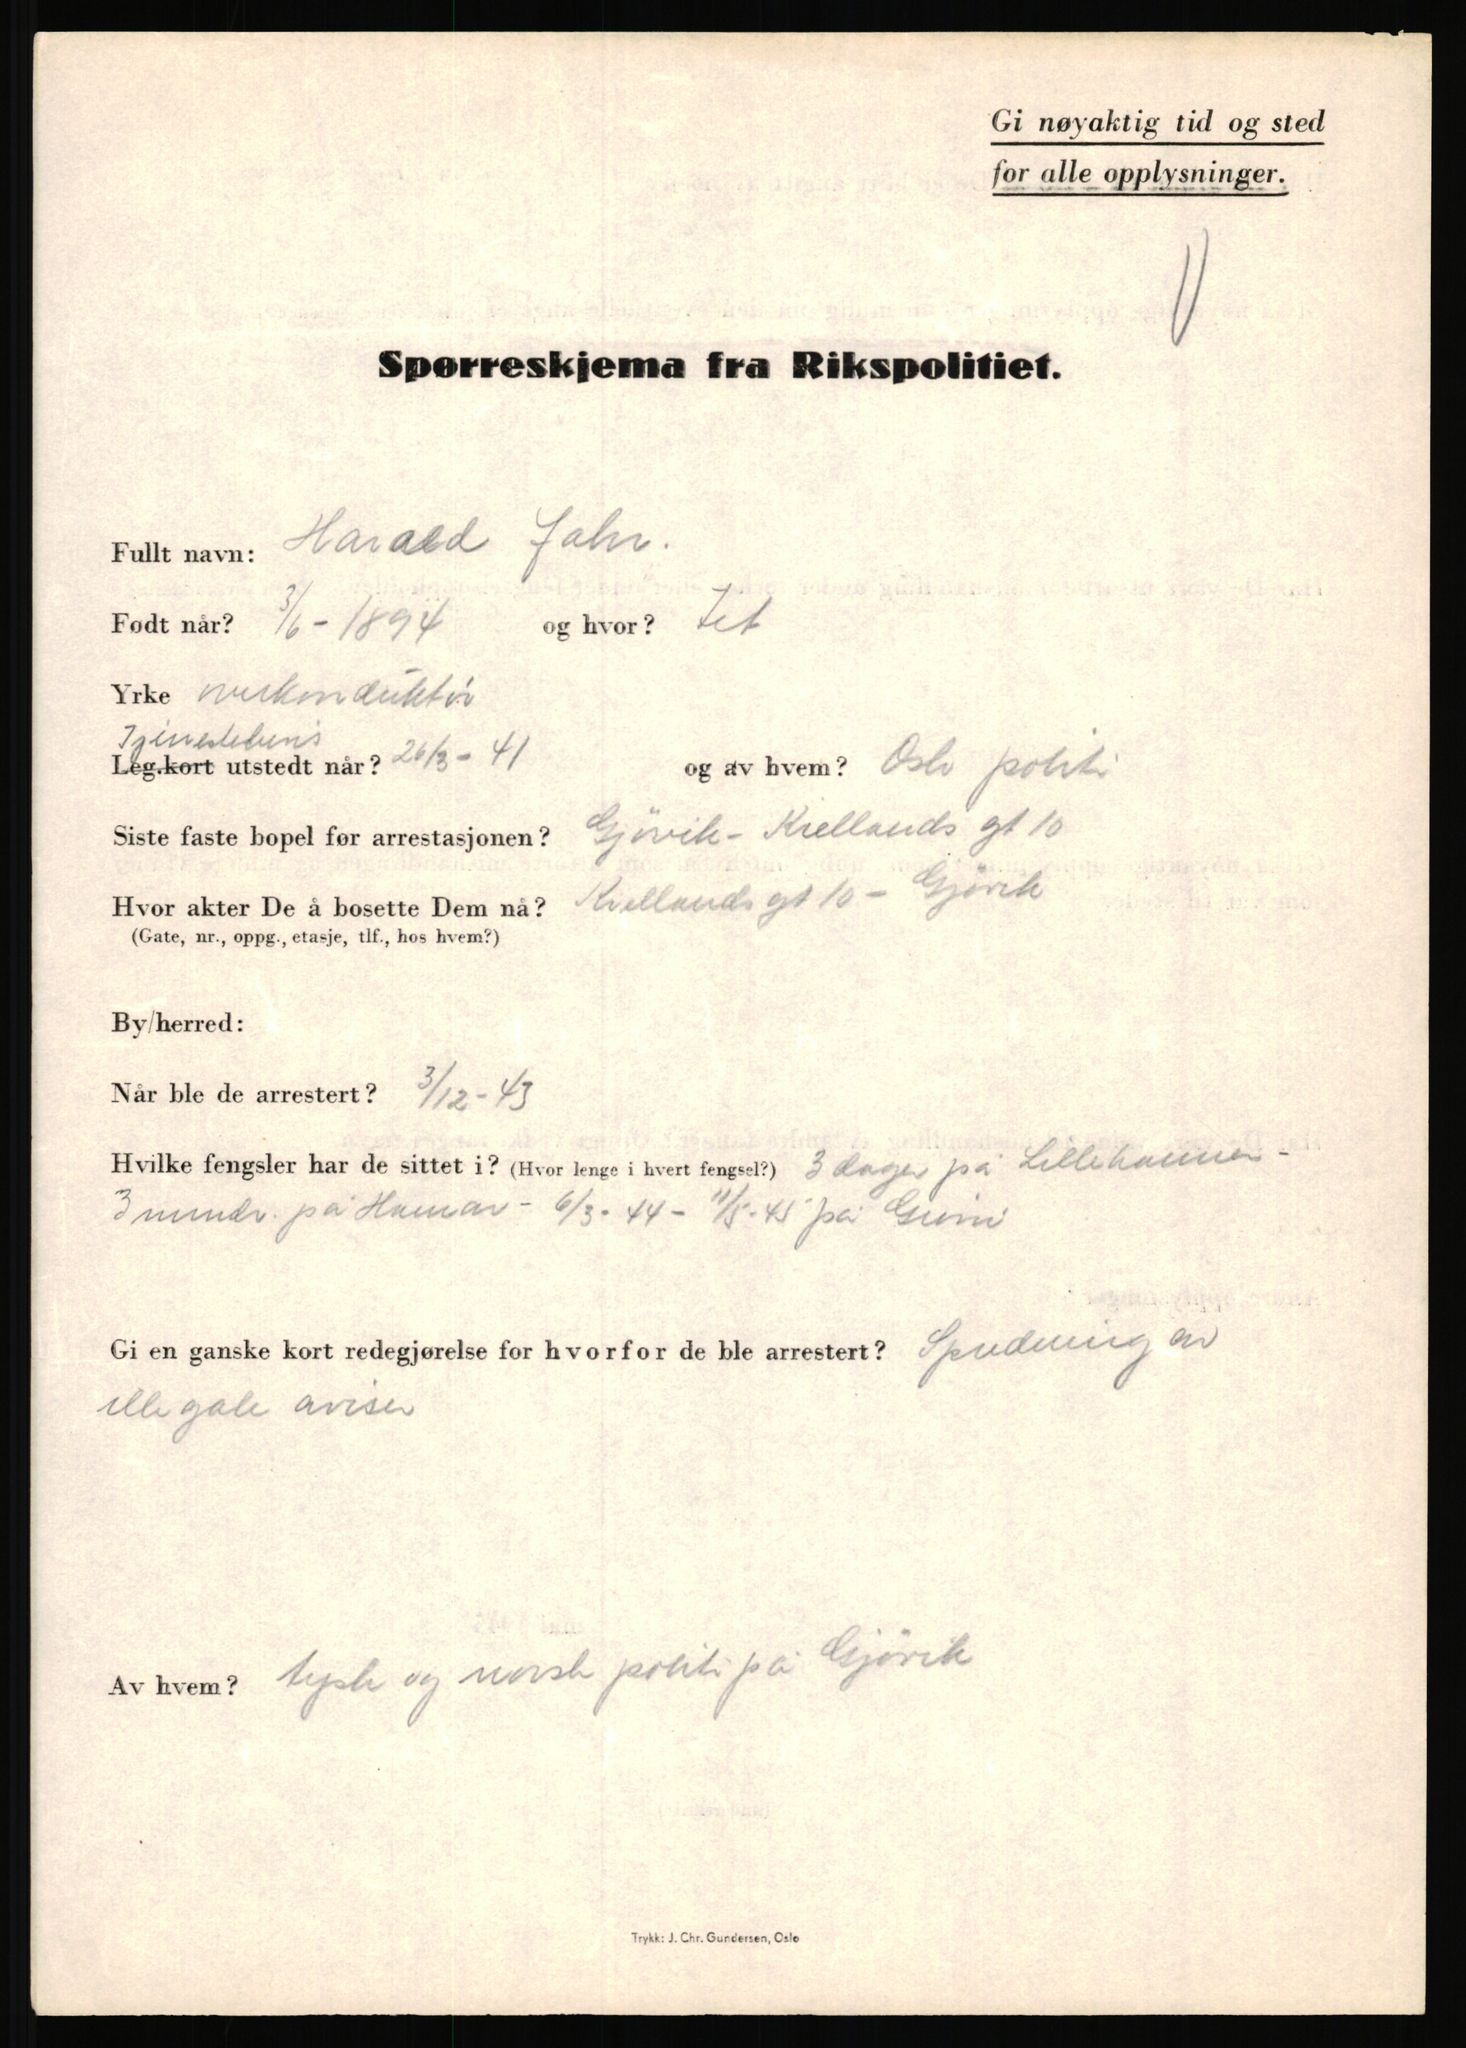 Gi nøyaktig tid og sted
for alle opplysninger.
Spørreskjema fra Rikspolitiet.
Fullt navn: Harald Jahr.
Født når? 3/6 - 1894 og hvor? Jet
Yrke overkonduktör
Tjenestebevis
Leg.kort utstedt når? 26/3 - 41 og av hvem? Oslo politi
Siste faste bopel før arrestasjonen? Gjövik - Kiellands gt 10
Hvor akter De å bosette Dem nå? Kiellands gt 10 - Gjövik
(Gate, nr., oppg., etasje, tlf., hos hvem?)
By/herred:
Når ble de arrestert? 3/12 - 43
Hvilke fengsler har de sittet i? (Hvor lenge i hvert fengsel?) 3 dager på Lillehammer -
3 mndr. på Hamar - 6/3 - 44 - 11/5 - 45 på Grini
Gi en ganske kort redegjørelse for hvorfor de ble arrestert? Spredning av
illegale aviser
Av hvem? tysk og norsk politi på Gjövik
Trykk: J. Chr. Gundersen, Oslo